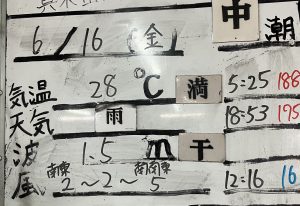 中 潮
6/16(金)
気温 28℃ 満 5:25 188
天気 雨 18:53 195
波 1.5m 干
風 南東 2~2~5 南南東 12:16 16